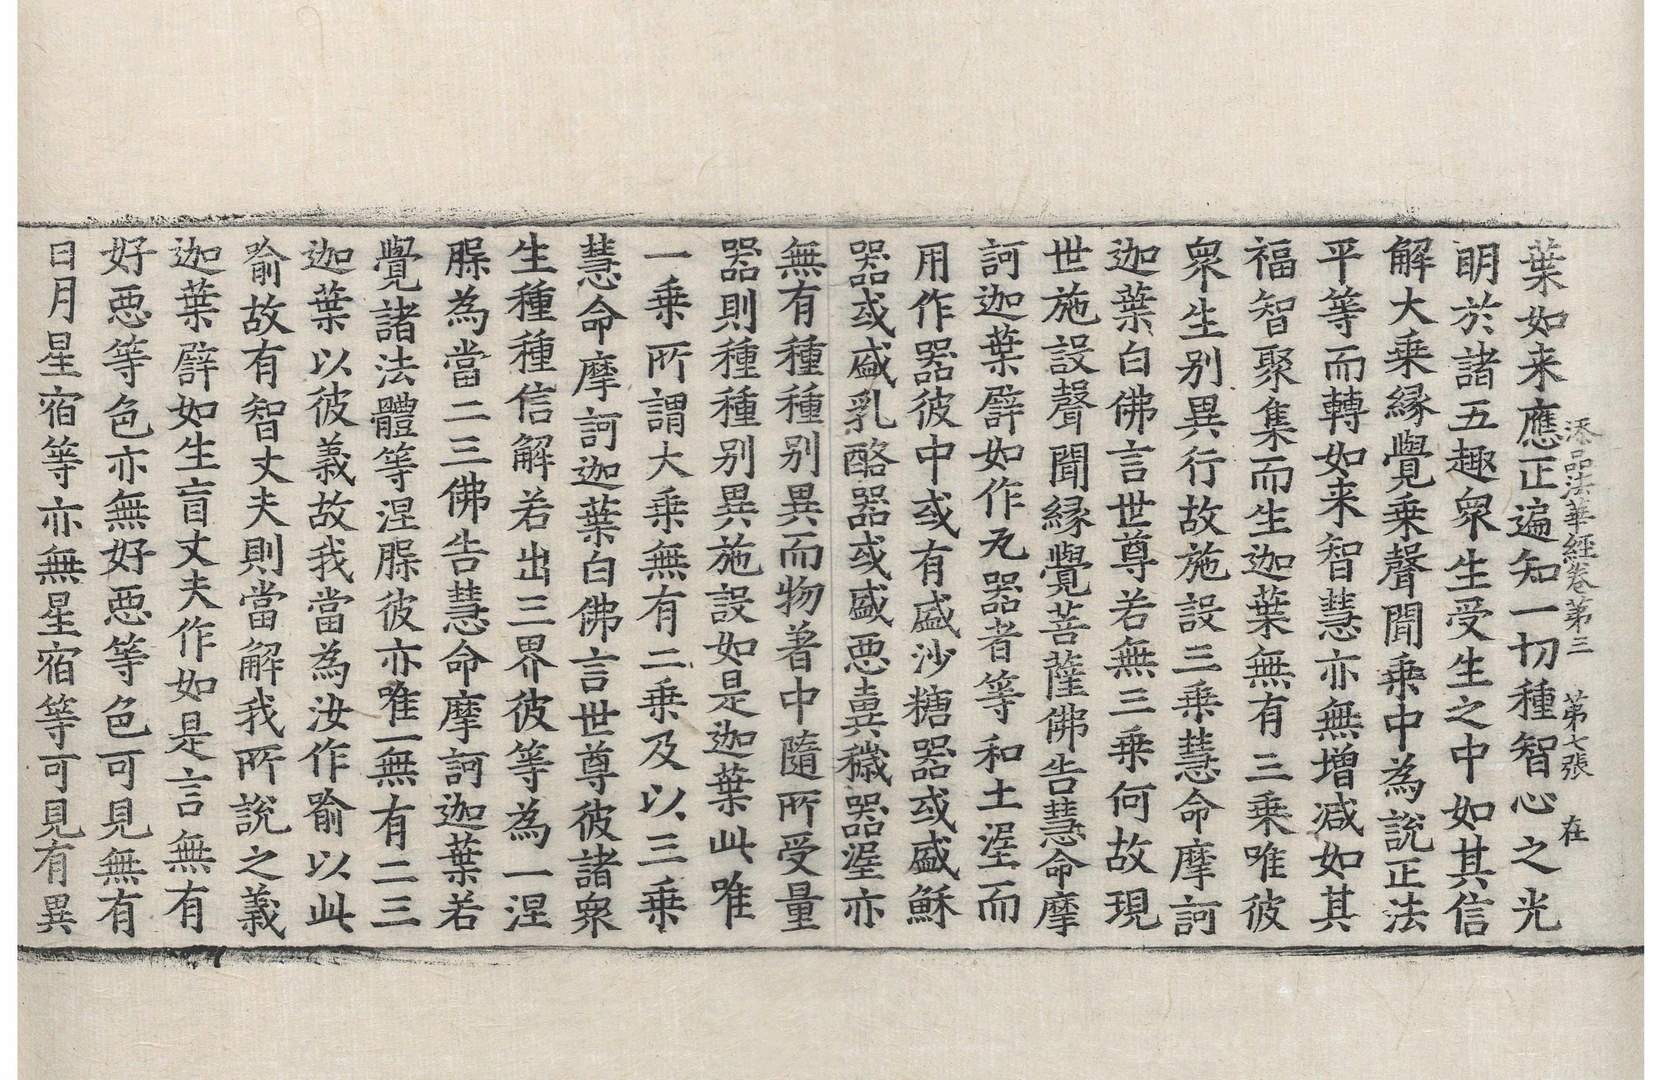 添品法華經卷第三 第七張 在
葉如来應正遍知一切種智心之光
明於諸五趣衆生受生之中如其信
解大乗縁覺乗聲聞乗中為說正法
平等而轉如来智慧亦無增減如其
福智聚集而生迦葉無有三乗唯彼
衆生别異行故施設三乗慧命摩訶
迦葉白佛言世尊若無三乗何故現
世施設聲聞縁覺菩薩佛告慧命摩
訶迦葉譬如作瓦器者等和土渥而
用作器彼中或有盛沙糖器或盛穌
器或盛乳酪器或盛悪糞穢器渥亦
無有種種别異而物著中隨所受量
器則種種别異施設如是迦葉此唯
一乗所謂大乗無有二乗及以三乗
慧命摩訶迦葉白佛言世尊彼諸衆
生種種信解若出三界彼等為一涅
䐧為當二三佛告慧命摩訶迦葉若
覺諸法體等涅䐧彼亦唯一無有二三
迦葉以彼義故我當為汝作喻以此
喻故有智丈夫則當解我所說之義
迦葉譬如生盲丈夫作如是言無有
好悪等色亦無好悪等色可見無有
日月星宿等亦無星宿等可見有異